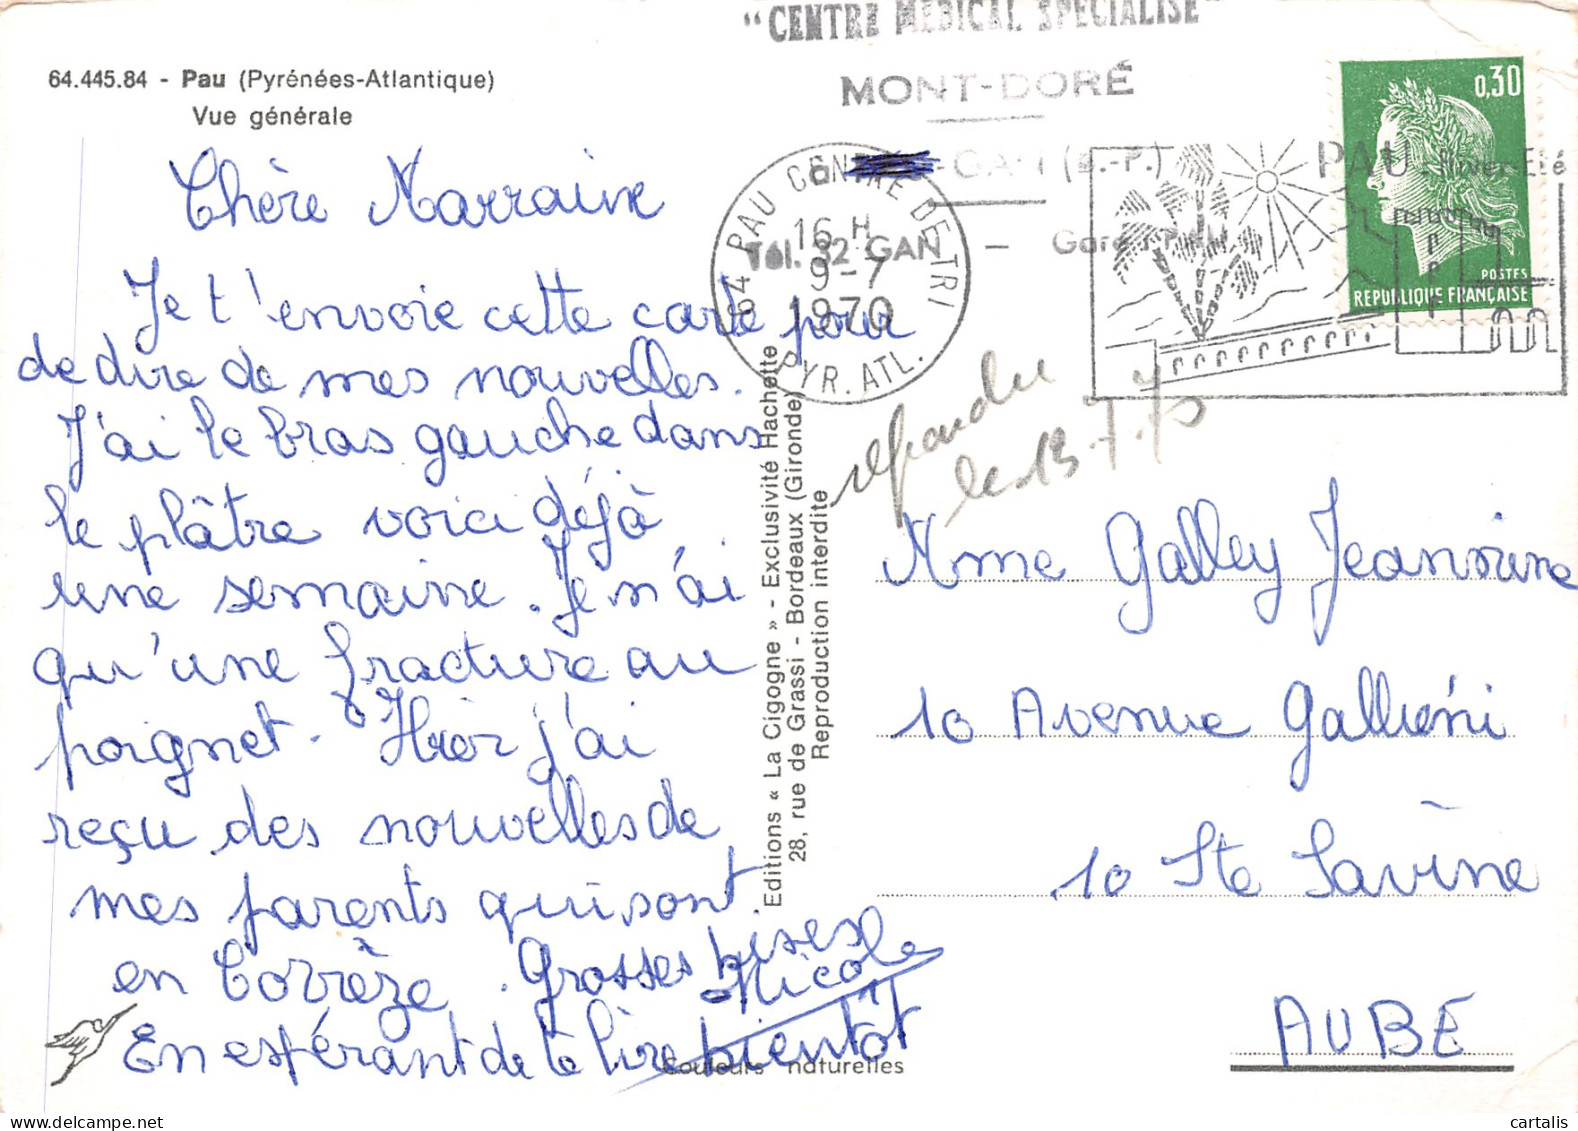 64.445.84 - Pau (Pyrénées-Atlantique)
Vue générale
"CENTRE MEDICAL SPECIALISE"
MONT-DORÉ
à GAN (B.-P.)
Tél. 82 GAN - Gare : PAU
64 PAU CENTRE DE TRI
16 H
9-7
1970
PYR. ATL.
PAU Hiver-Eté
0,30
POSTES
REPUBLIQUE FRANÇAISE
Chère Marraine
Je t'envoie cette carte pour
de dire de mes nouvelles.
J'ai le bras gauche dans
le plâtre voici déjà
une semaine. Je n'ai
qu'une fracture au
poignet. Hier j'ai
reçu des nouvelles de
mes parents qui sont
en Corrèze. Grosses bises
Nicole
En espérant de te lire bientôt
Editions « La Cigogne » - Exclusivité Hachette
28, rue de Grassi - Bordeaux (Gironde)
Reproduction interdite
répondu
le 13.7.70
Mme Galley Jeannine
10 Avenue Galliéni
10 Ste Savine
AUBE
Couleurs naturelles
cartalis